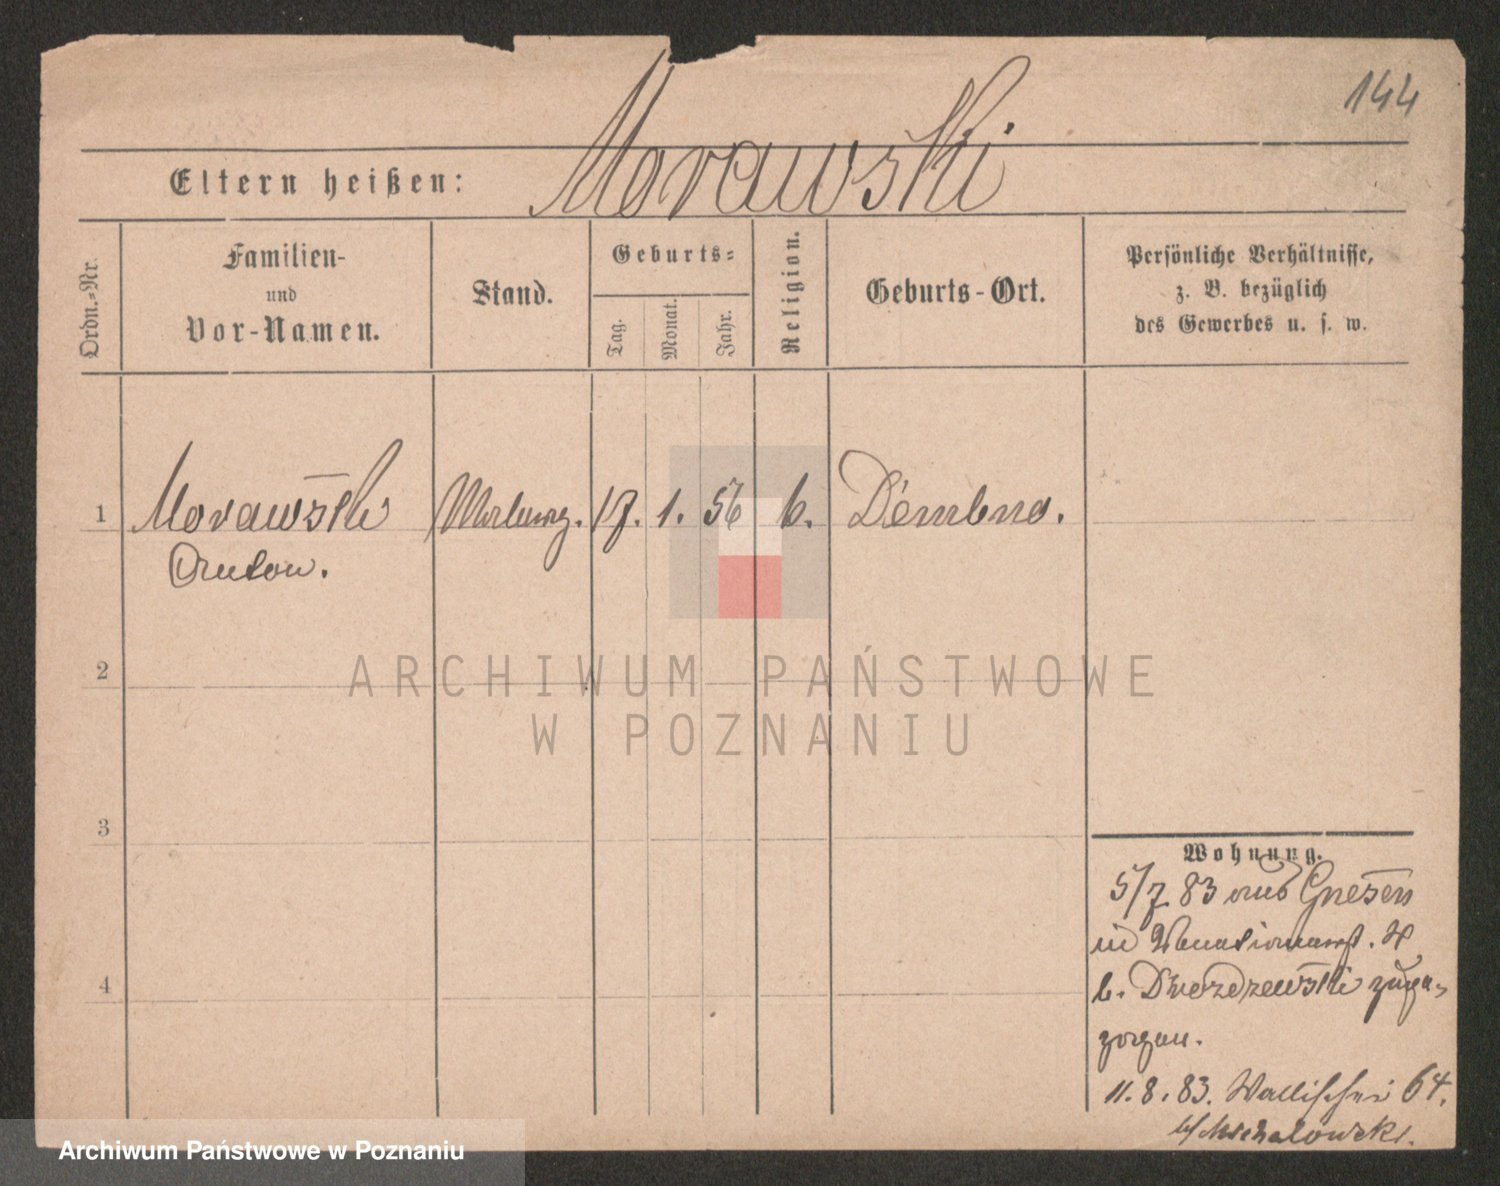 144
Eltern heißen: Morawski
Ordn.-Nr.
Familien-
und
Vor-Namen.
Stand.
Geburts-
Tag.
Monat.
Jahr.
Religion.
Geburts-Ort.
Persönliche Verhältnisse,
z. B. bezüglich
des Gewerbes u. s. w.
1 Morawski 17. 1. 56 k. Dembno.
Anton.
2
3
4
Wohnung.
5/7 83 aus Gnesen
in
b. zuge-
zogen.
11. 8. 83. Wallischei 64.
b/ Michalowski.
ARCHIWUM PAŃSTWOWE
W POZNANIU
Archiwum Państwowe w Poznaniu